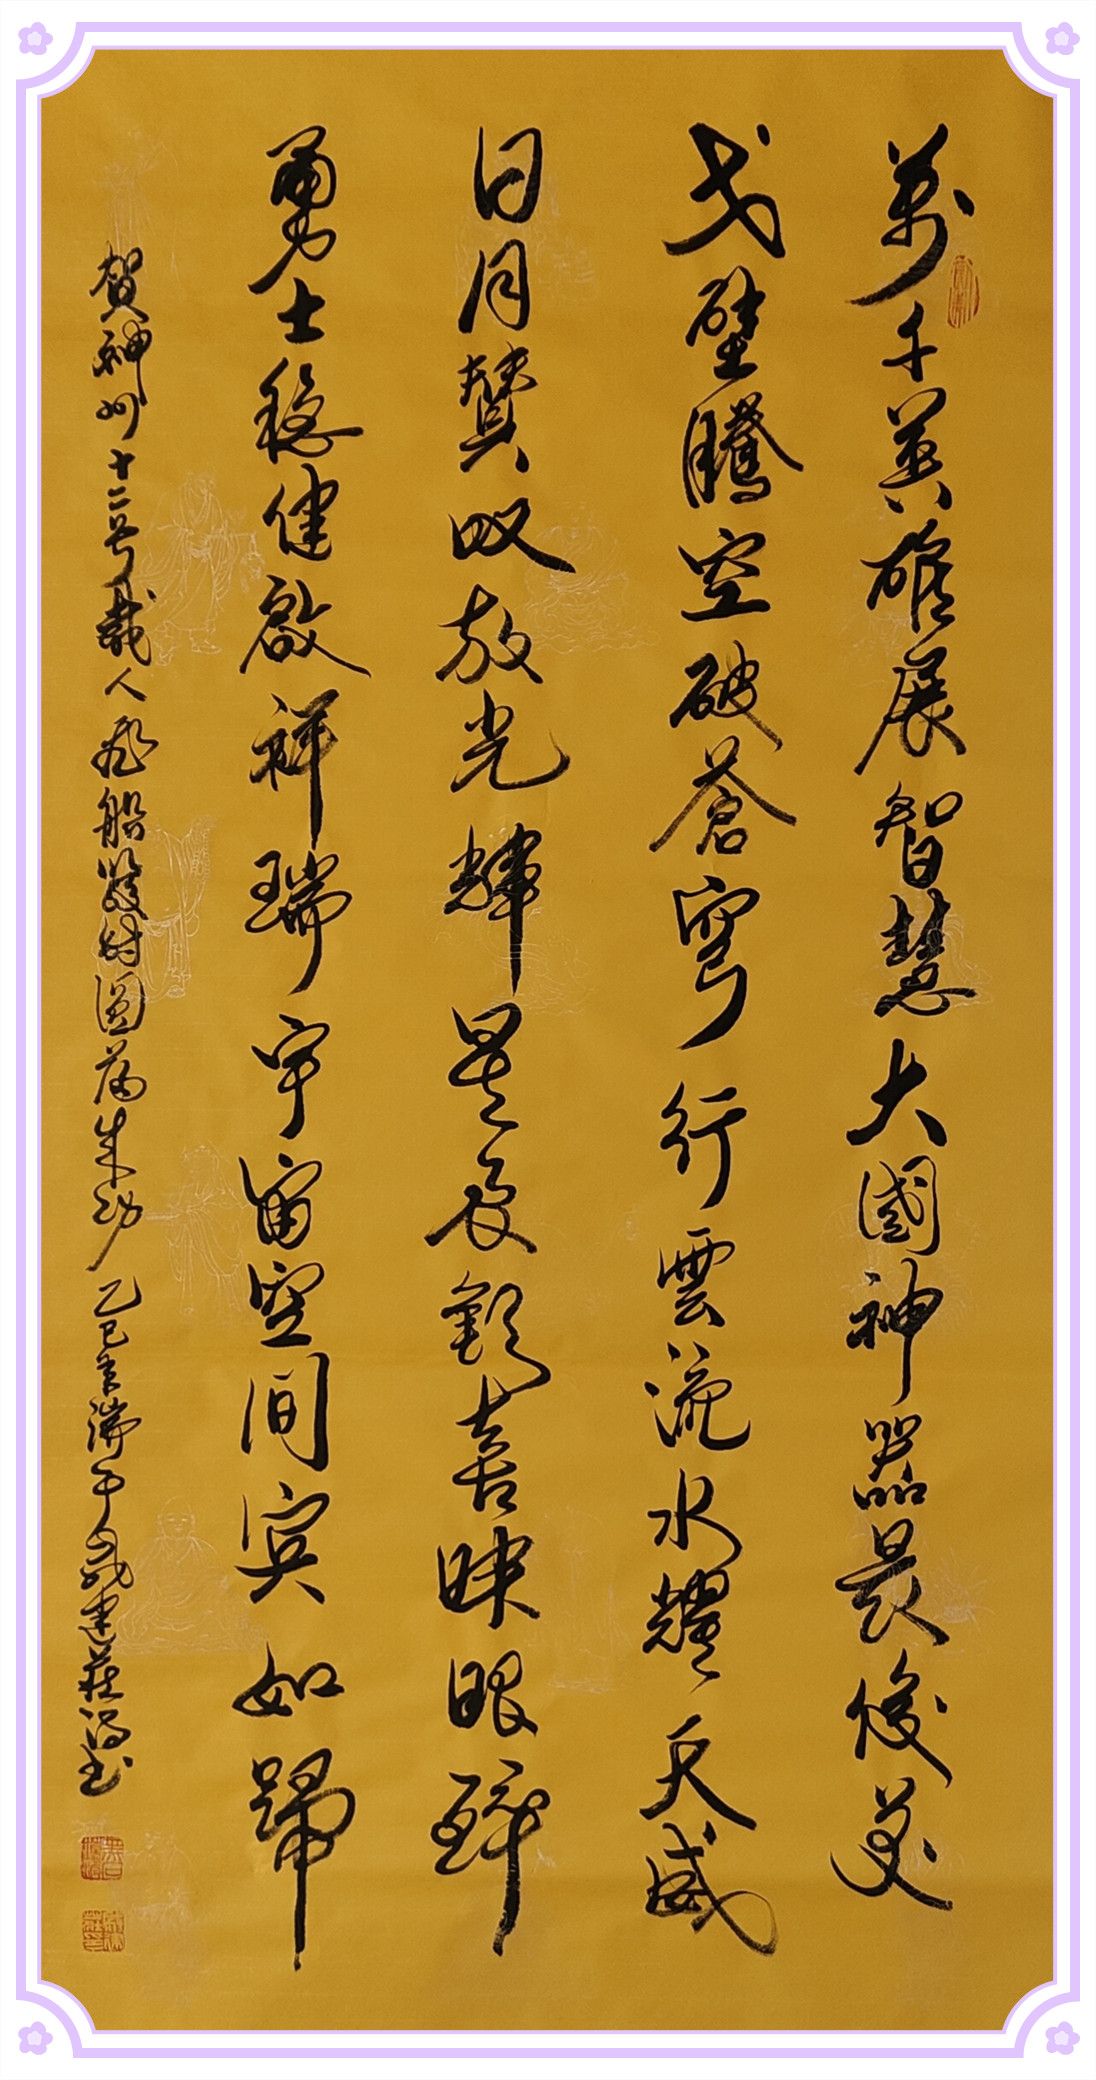 萬千英雄展智慧大國神器最後美
戈壁騰空破蒼穹行雲流水耀天威
日月贊叹放光輝星辰歡喜映眼醉
勇士穩健啟祥瑞宇宙空間賓如歸
賀神州十二号載人飛船發射圓滿成功乙巳年端午戚建莊